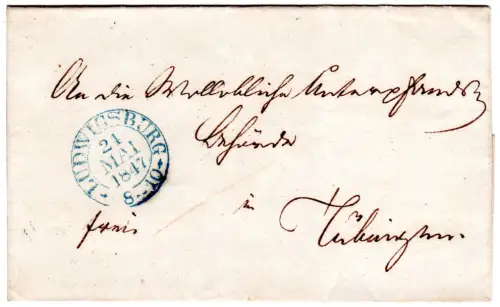 An die Wollöbliche Unterpfands
Behörde
LUDWIGSBURG
24
MAI
1847
8-10
in
frei
Tübingen.